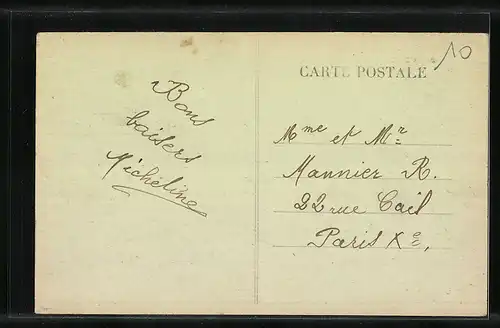 10
CARTE POSTALE
Bons
baisers
Micheline
Mme et Mr
Mannier R.
22 rue Cail
Paris Xe,